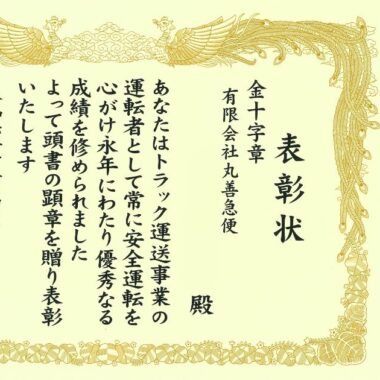 表彰状
金十字章
有限会社丸善急便
殿
あなたはトラック運送事業の
運転者として常に安全運転を
心がけ永年にわたり優秀なる
成績を修められました
よって頭書の顕章を贈り表彰
いたします